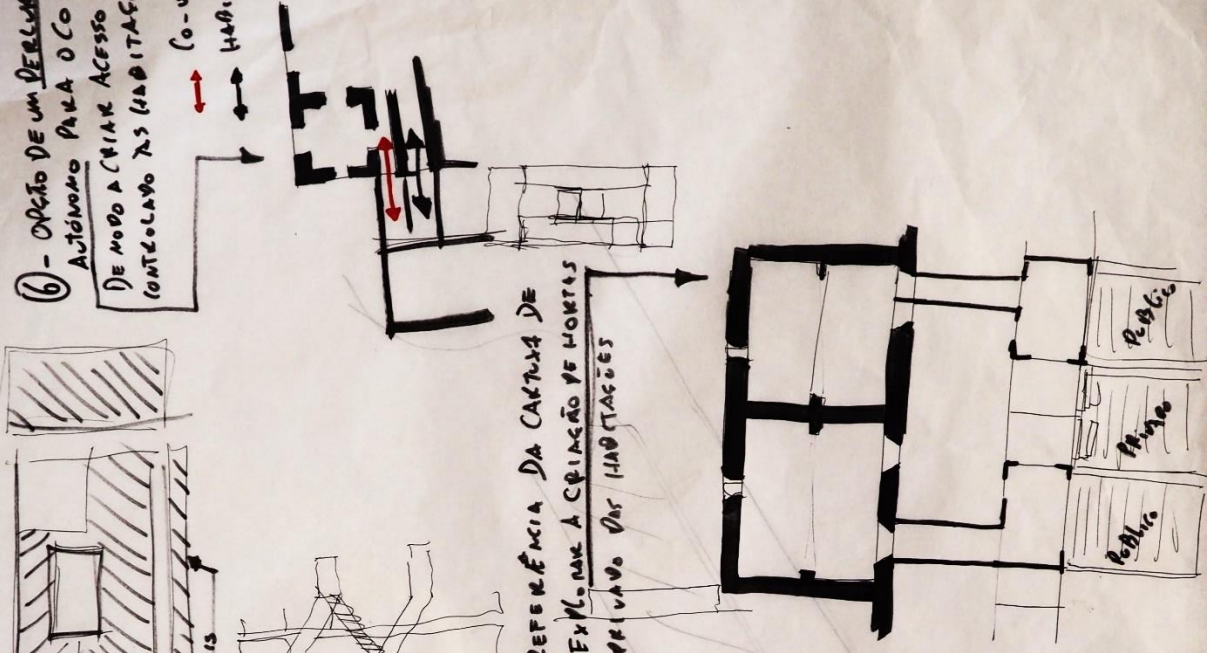 ⑥ - OPÇÃO DE UM
AUTÓNOMO PARA O CO
DE MODO A CRIAR ACESSO
CONTROLADO ÀS HABITAÇ
Co-
HABI
REFERÊNCIA DA CARTUXA DE
EXPLORAR A CRIAÇÃO DE HORTAS
PRIVADO DAS HABITAÇÕES
PÚBLICO
PRIVADO
PÚBLICO
IS